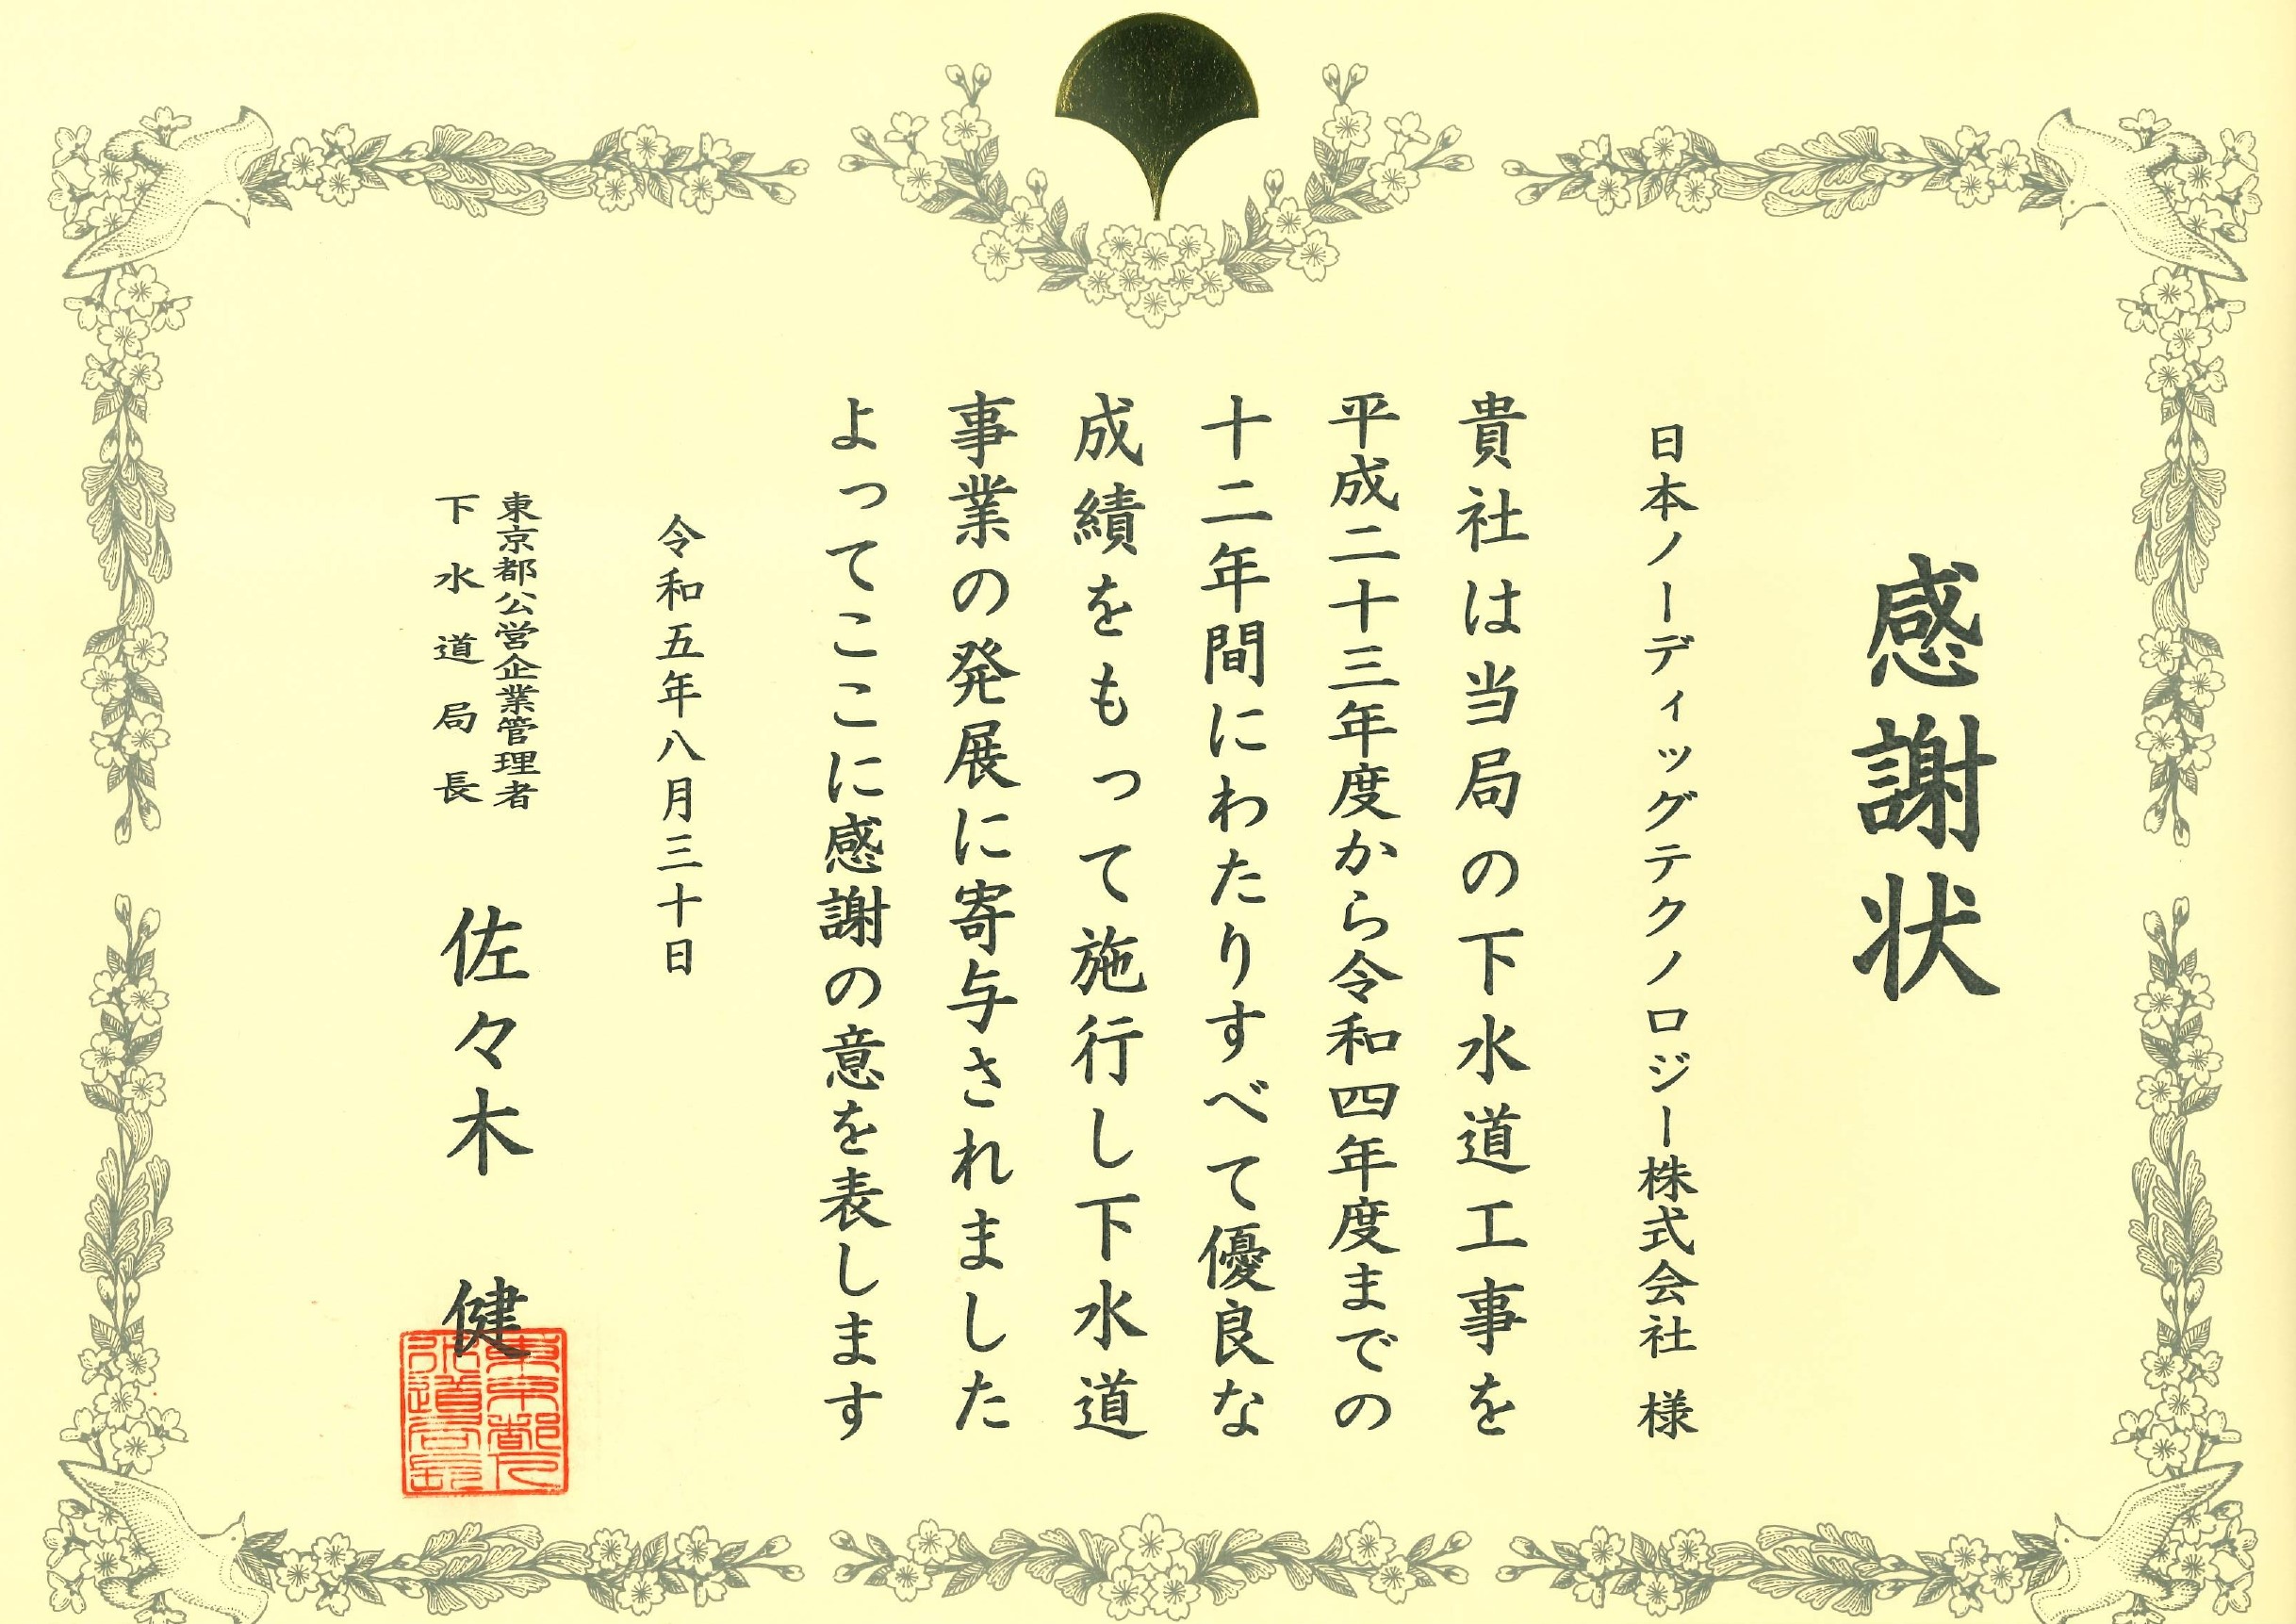 感謝状
日本ノーディッグテクノロジー株式会社 様
貴社は当局の下水道工事を
平成二十三年度から令和四年度までの
十二年間にわたりすべて優良な
成績をもって施行し下水道
事業の発展に寄与されました
よってここに感謝の意を表します
令和五年八月三十日
東京都公営企業管理者
下水道局長
佐々木 健